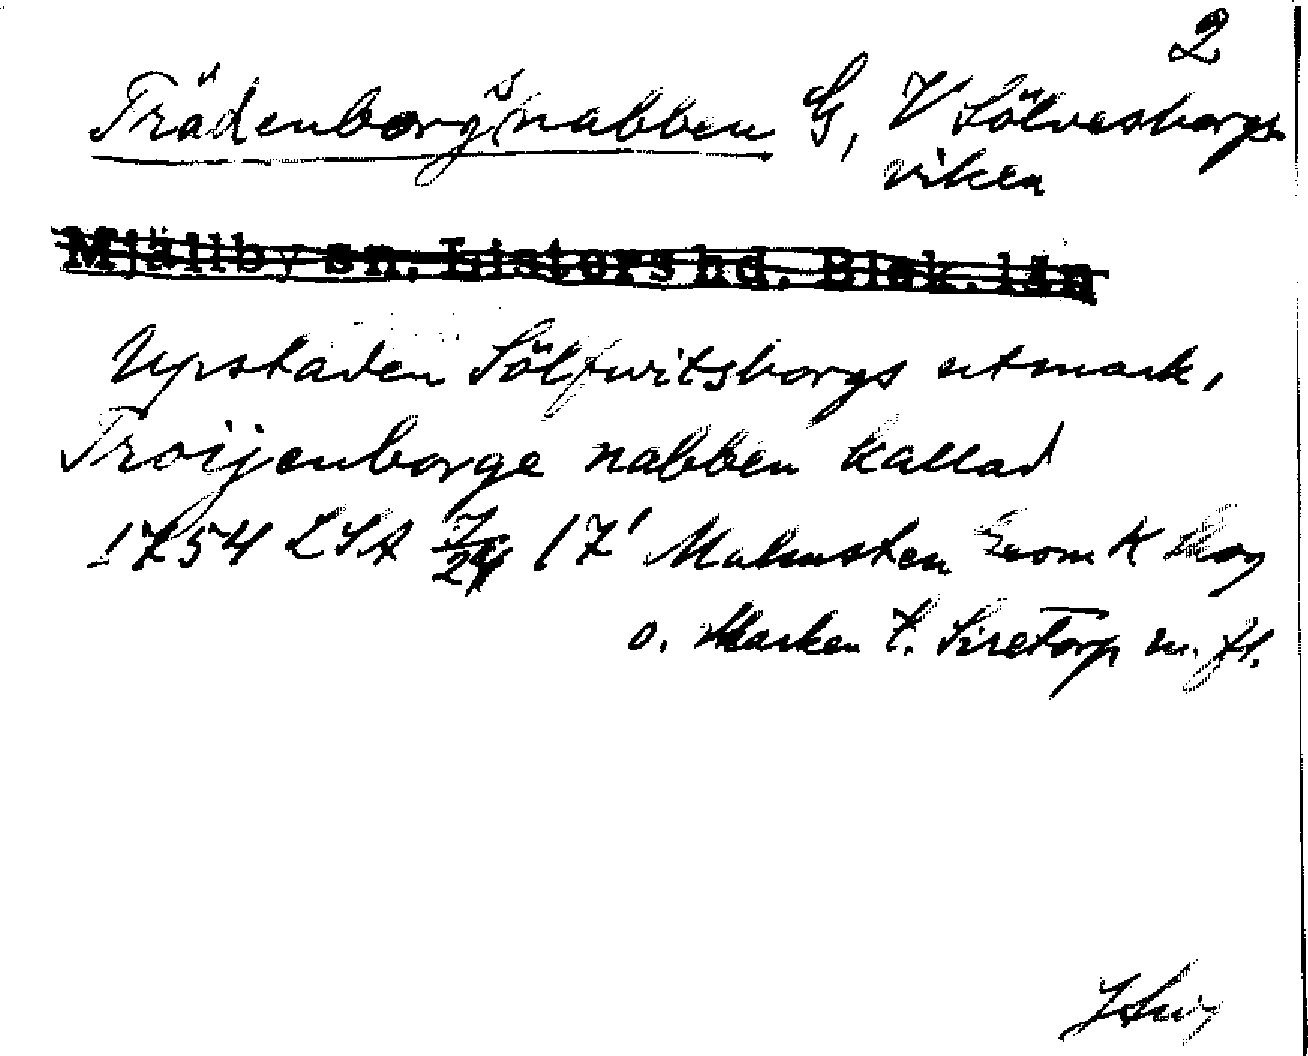 2
Trädenborgsnabben G, V Sölvesborgs-
viken
Mjällby sn, Listers hd. Blek. län
Upstaden Sölfwitsborgs utmark,
Troijenborge nabben kallad
1754 LSA 17' Malmsten K Skog
o. Marken t. Siretorp m. fl.